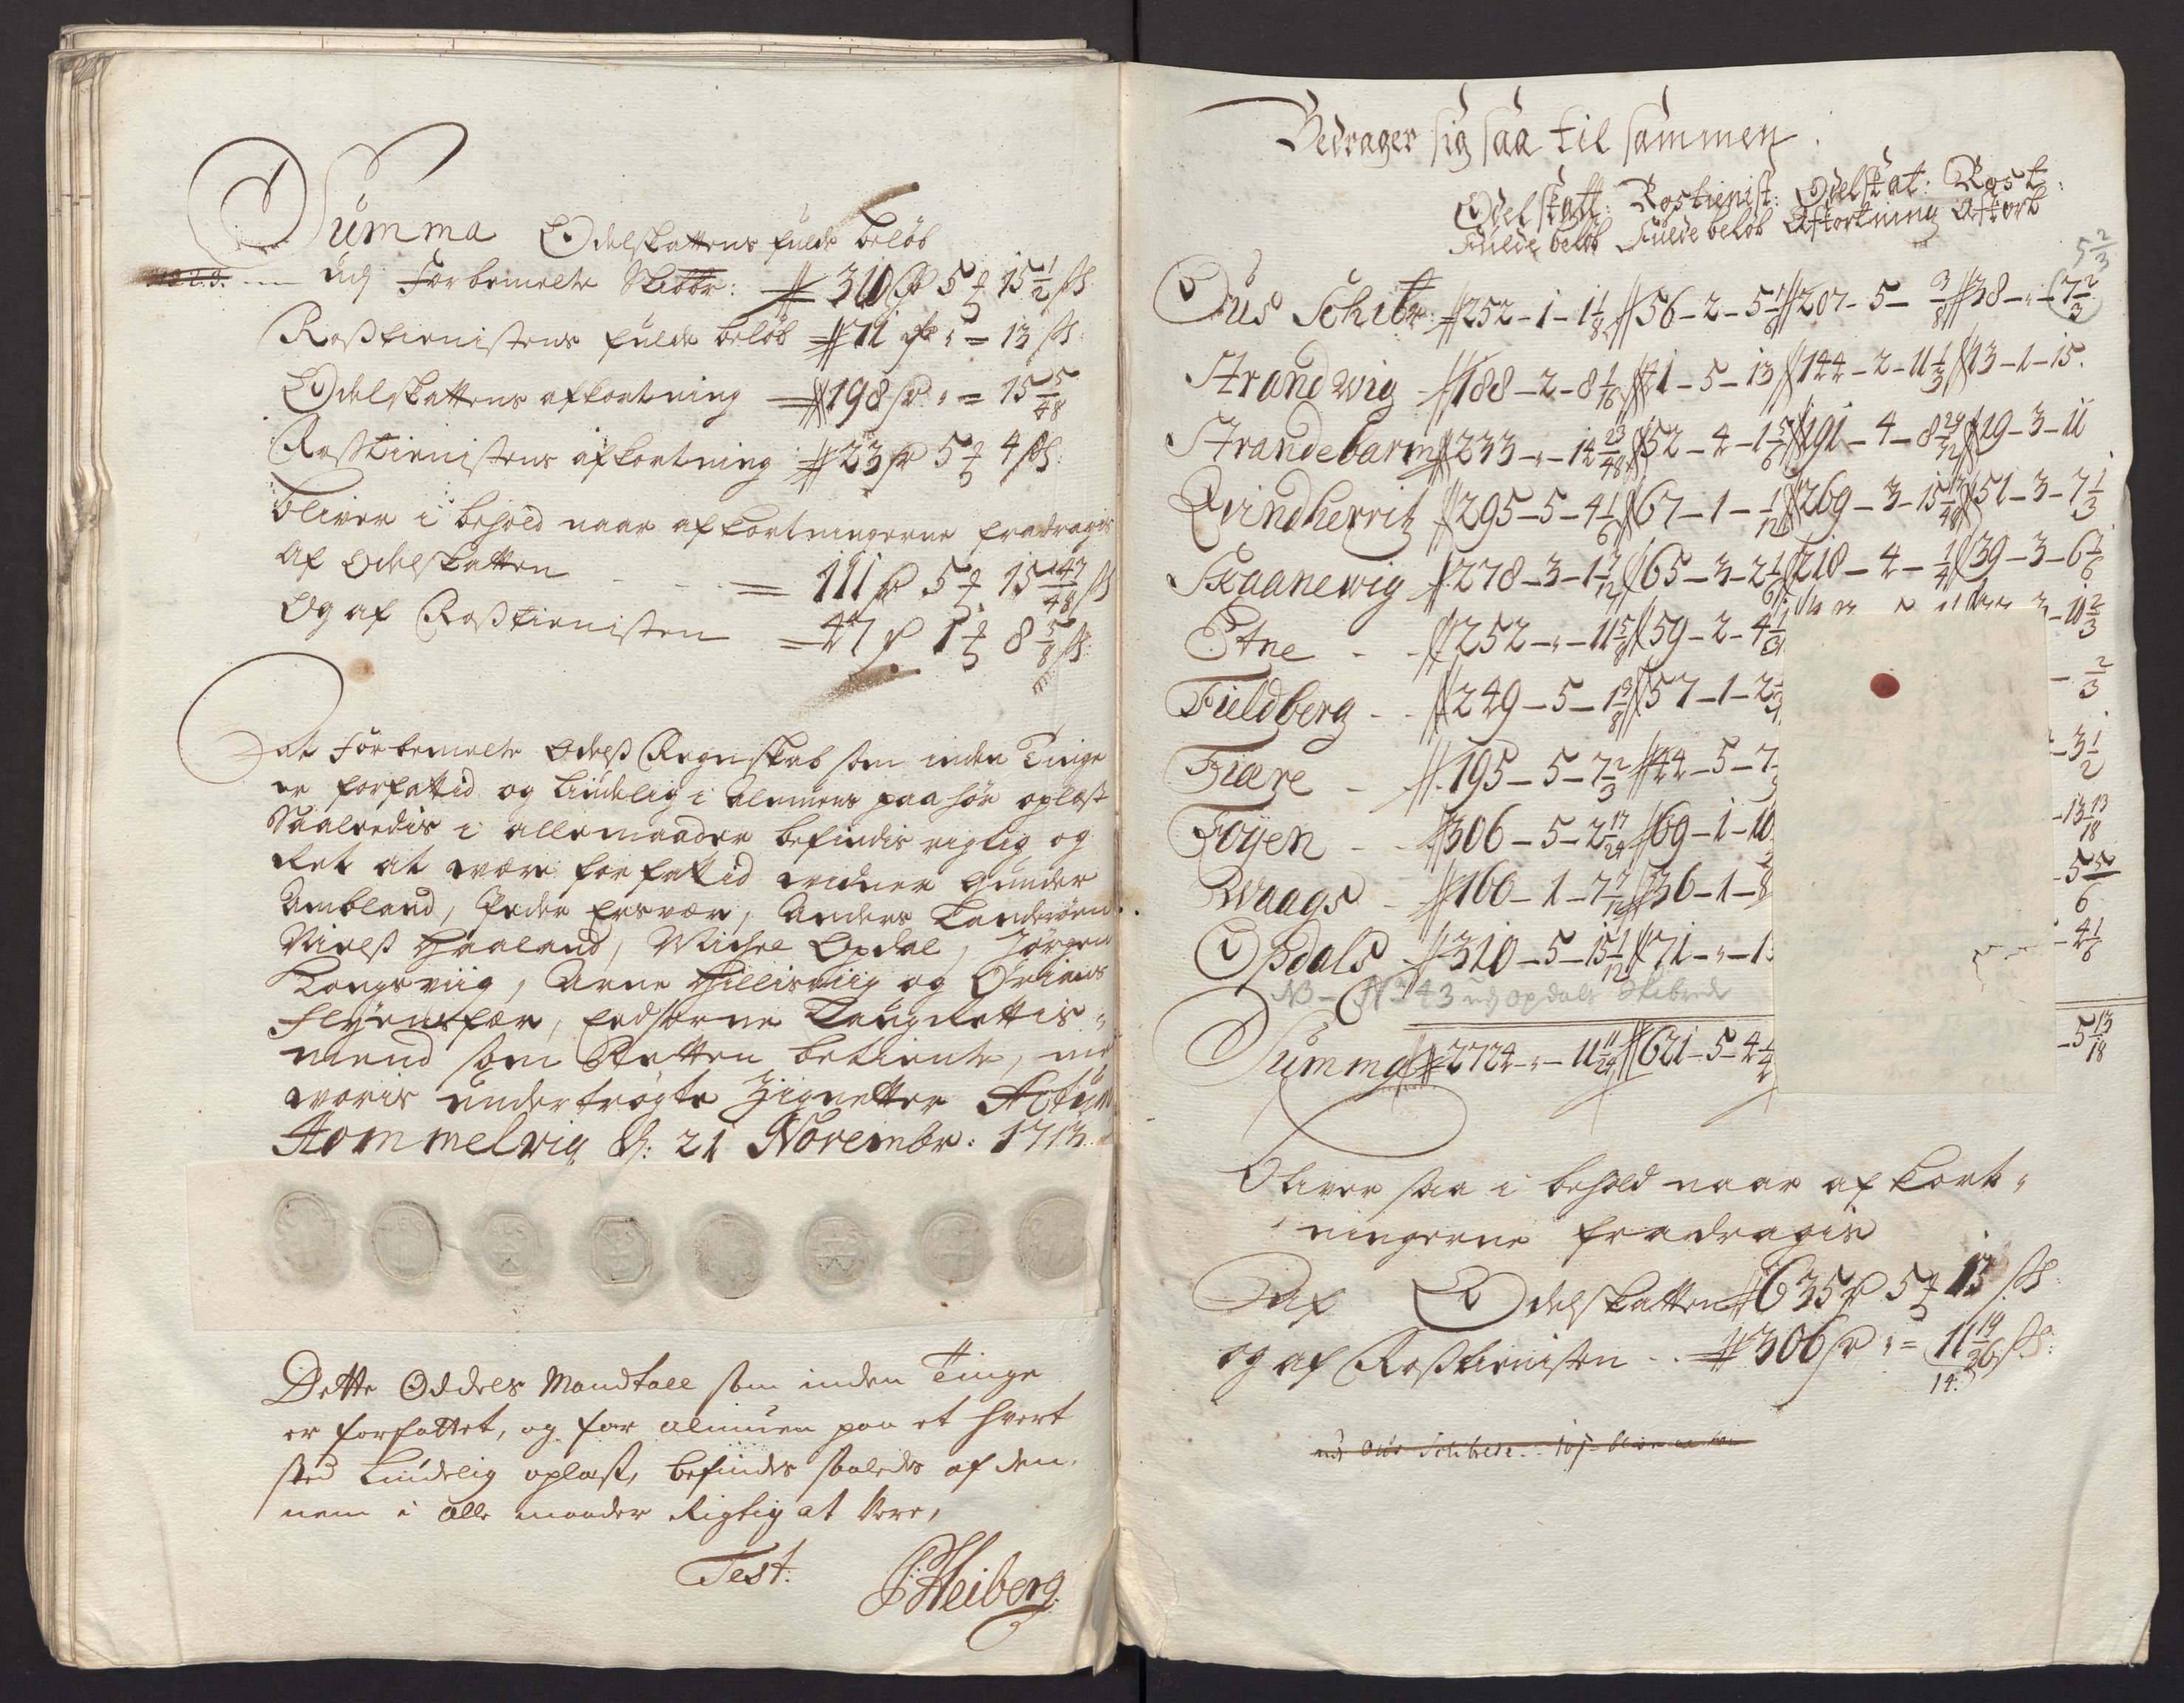 Summa Odelskattens fulde beløb
udj Forbemelte Skibbr: 310 5 15 1/2 ß
Roßtienistens fulde beløb 71 " 13 ß:
Odelskattens afkortning 198 " 15 5/48
Roßtienistens afkortning 23 5 4 ß:
bliver i behold naar afkortningerne fradragis
Af Odelskatten 111 5 15 43/48 ß
Og af Roßtienisten 47 1 8 5/8 ß:
At Forbemelte Odelß Regnskab som inden Tinge
er forfattid og Liudelig i Almuens paahør oplæst
Saaledis i allemaader befindis rigtig og
Ret at være forfattid vidner Gunder
Ambland, Peder Ersvær, Anders Landerøen
Nielß Haaland, Michel Opdal, Jørgen
Kongsviig, Arne Hillisviig og Ørians
Flyensfær, Eedsorne Laugrettis-
mend som Retten betiente, med
woris undertrøgte Zignetter Actum
Hommelvig d: 21 Novembr: 1713
Dette Oddels Mandtall som inden Tinge
er forfattet, og for almuen paa et hvert
sted Liudelig oplæst, befindes saaledes af den-
nem i alle maader Rigtig at Være,
Test. Heiberg.
Bedrager sig saa til sammen
Odelskatt: Rostienist: Odelskat: Rost:
Fulde beløb Fulde beløb Afkortning Afkort
5 2/3
Ous Schibr: 252-1-1 1/8 56-2-5 207-5- 3/8 38-"-7 2/3
Strandwig 188-2-8 1/16 41-5-13 144-2-11 1/3 13-1-15.
Strandebarm 233-"-14 23/48 52-4-1 5/6 191-4-8 29/72 19-3-11
Qvindherrit 295-5-4 1/6 67-1- 1/12 269-3-15 51-3-7 1/3
Skaanewig 278-3-1 65-3-2 218-4- 1/4 39-3-6 1/6
Etne 252-"-11 5/8 59-2-4 1/3 -10 2/3
Fieldberg 249-5-1 3/8 57-1-2 - 2/3
Fiære 195-5-7 2/3 44-5-7 -3 1/2
Føyen 306-5-2 17/24 69-1-10 -13 13/18
Waags 160-1-7 36-1-8 -5 5/6
Opdals 310-5-15 1/12 71-"-1 -4 1/6
NB - No 43 udj Opdals Skibrede
Summa 2724-"-11 11/24 621-5-4 1/4 -5 13/18
Bliver saa i behold naar afkort-
ningerne fradragis
Af Odelskatten 635 5 13 ß:
og af Roßtienisten 306 " 11 19/36 ß:
14: